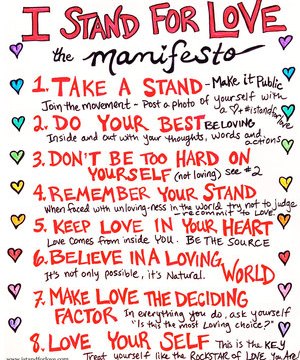 I STAND FOR LOVE
the manifesto
1. TAKE A STAND - Make it Public
Join the movement - Post a photo of yourself with
a ♡ + #istandforlove
2. DO YOUR BEST BE LOVING
Inside and out with your thoughts, words and
actions
3. DON'T BE TOO HARD ON
YOURSELF (not loving) see #2
4. REMEMBER YOUR STAND
When faced with unloving-ness in the world try not to judge
- recommit to LOVE.
5. KEEP LOVE IN YOUR HEART
Love comes from inside YOU. BE THE SOURCE
6. BELIEVE IN A LOVING
WORLD
It's not only possible, it's Natural.
7. MAKE LOVE THE DECIDING
FACTOR In everything you do, ask yourself
"Is this the most Loving choice?"
8. LOVE YOUR SELF This is the KEY
Treat yourself like the ROCKSTAR of LOVE You Are
www.istandforlove.com